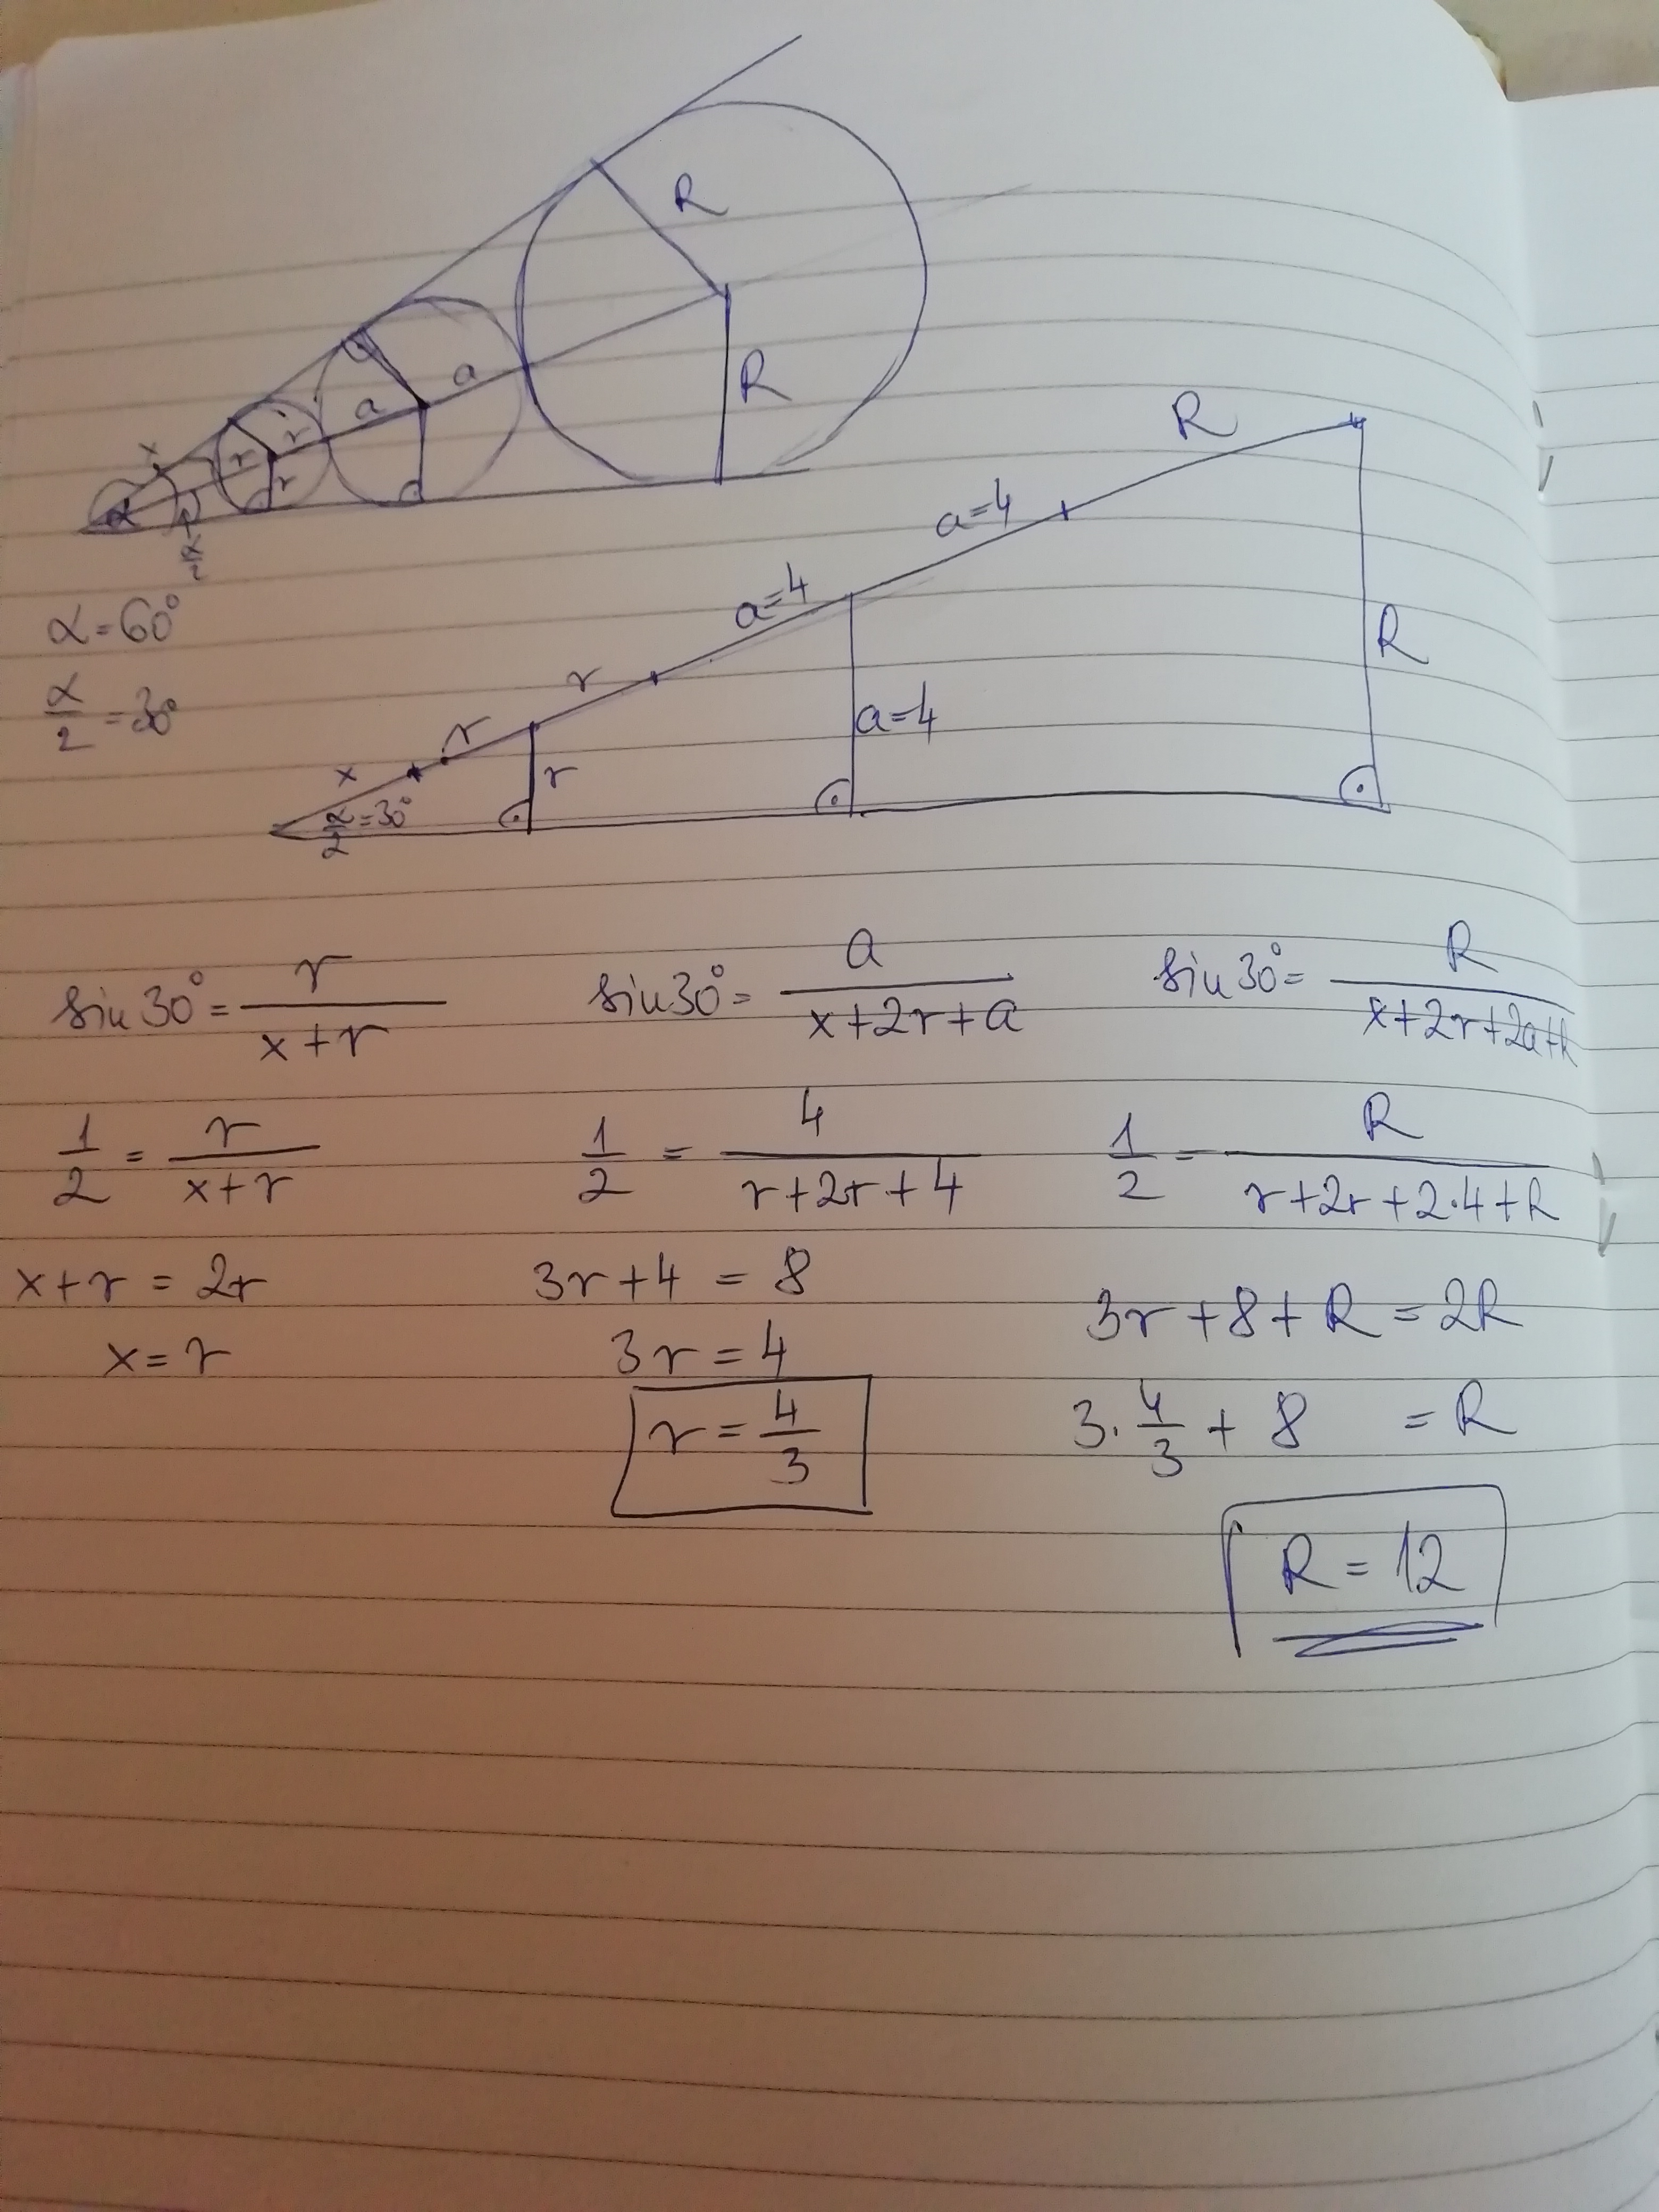 R
R
a
a
r
r
r
x
α
α/2
α=60°
α/2=30°
R
R
a=4
a=4
a=4
r
r
r
x
α/2=30°
sin30°=r/(x+r)
1/2=r/(x+r)
x+r=2r
x=r
sin30°=a/(x+2r+a)
1/2=4/(r+2r+4)
3r+4=8
3r=4
r=4/3
sin30°=R/(x+2r+2a+R)
1/2=R/(r+2r+2·4+R)
3r+8+R=2R
3·4/3+8=R
R=12